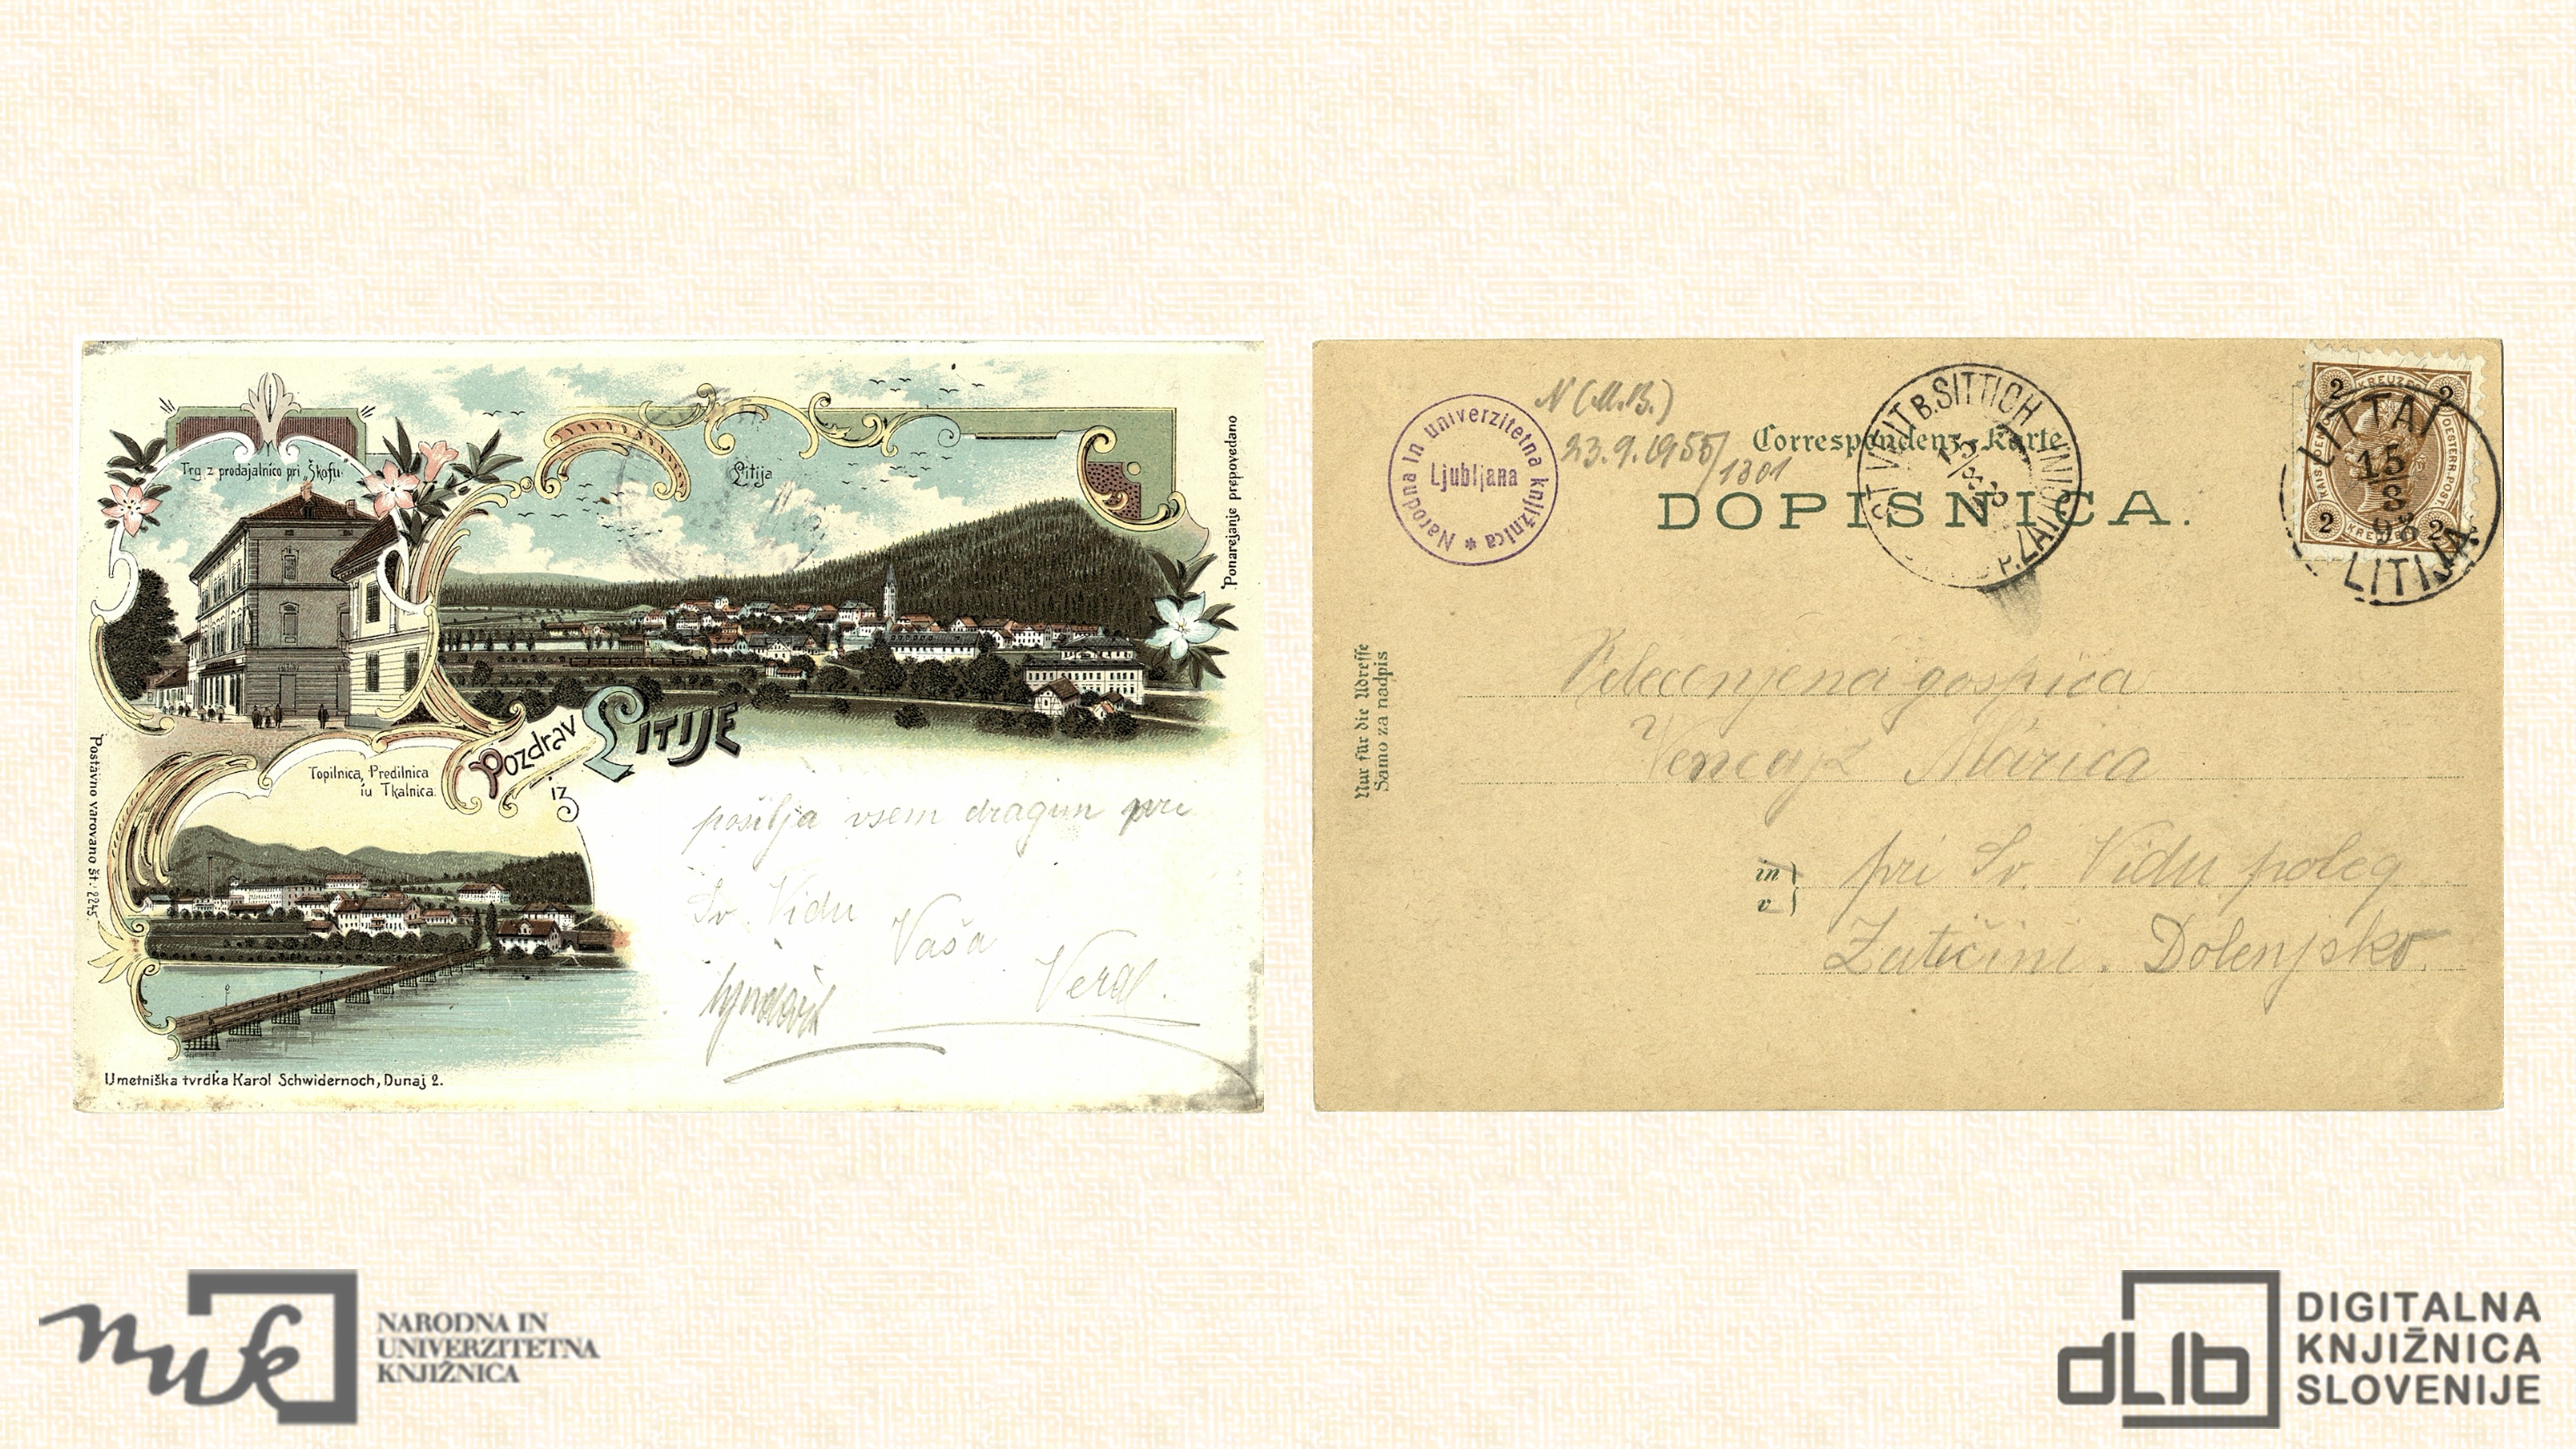 Trg z prodajalnico pri „Škofu“
Litija
Ponarejanje prepovedano
Postavno varovano Št: 2245
Pozdrav
iz
LITIJE
Topilnica, Predilnica
iu Tkalnica.
pošilja vsem dragim pri
Sv. Vidu
Vaša
Umetniška tvrdka Karol Schwidernoch, Dunaj 2.
Narodna in univerzitetna knjižnica *
Ljubljana
N (M.B.)
23.9.1955/
1301
Correspondenz-Karte
DOPISNICA.
ST VEIT B. SITTICH
P. ZATI
2 KREUZER 2
2 2
LITTAI
15
8
98
LITIJA
Nur für die Adresse
Samo za nadpis
Velecenjena gospica
Vencajz Marica
in
v
pri Sv. Vidu poleg
Zatičini. Dolenjsko.
nuk
NARODNA IN
UNIVERZITETNA
KNJIŽNICA
dLib
DIGITALNA
KNJIŽNICA
SLOVENIJE